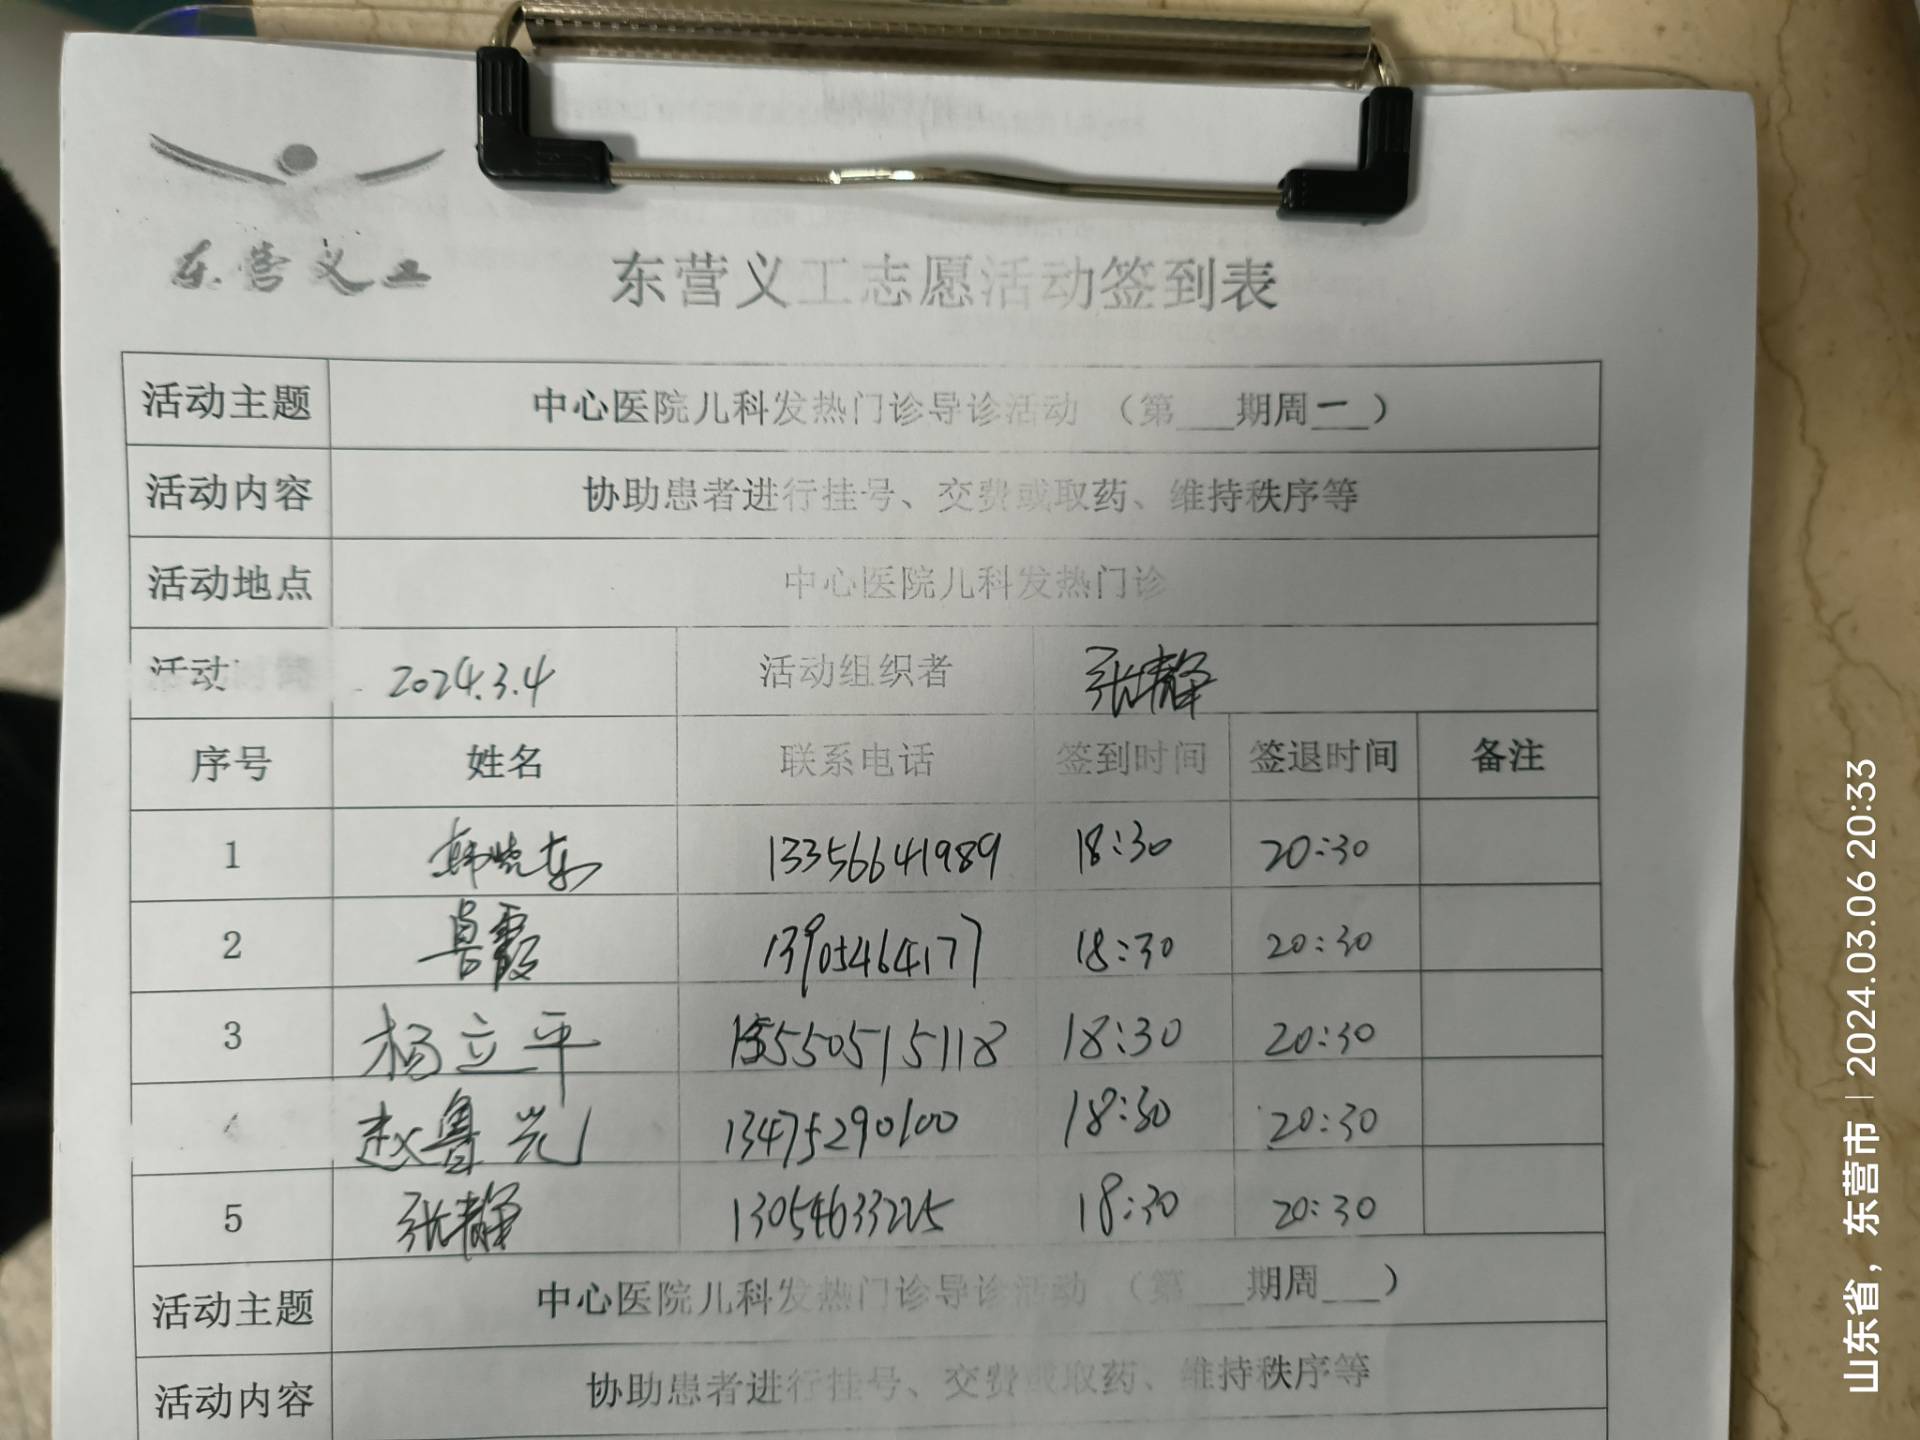 东营义工
东营义工志愿活动签到表
活动主题 中心医院儿科发热门诊导诊活动 （第___期周一）
活动内容 协助患者进行挂号、交费或取药、维持秩序等
活动地点 中心医院儿科发热门诊
活动时间 2024.3.4 活动组织者 张静
序号 姓名 联系电话 签到时间 签退时间 备注
1 韩晓东 13356641989 18:30 20:30
2 霞 13905464177 18:30 20:30
3 杨立平 15505115118 18:30 20:30
4 赵鲁光 13475290100 18:30 20:30
5 张静 13054633225 18:30 20:30
活动主题 中心医院儿科发热门诊导诊活动 （第___期周___）
活动内容 协助患者进行挂号、交费或取药、维持秩序等
山东省，东营市 | 2024.03.06 20:33